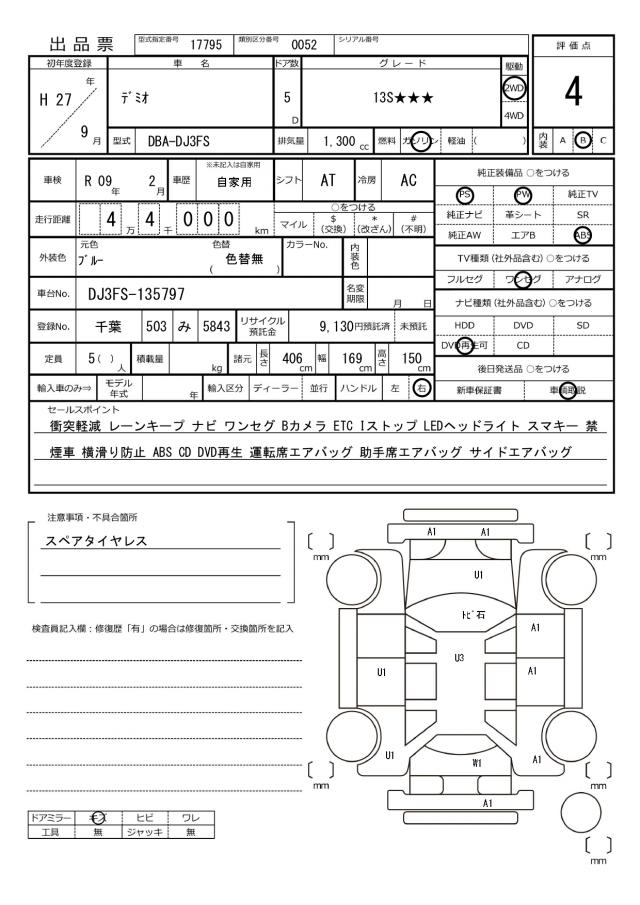 出品票 型式指定番号 17795 類別区分番号 0052 シリアル番号
評価点
初年度登録 車名 ドア数 グレード 駆動
H 27 年 9 月 デミオ 5 D 13S★★★ 2WD 4WD
4
型式 DBA-DJ3FS 排気量 1,300 cc 燃料 ガソリン 軽油 ( )
内装 A B C
車検 R 09 年 2 月 車歴 ※未記入は自家用 自家用 シフト AT 冷房 AC
純正装備品 ○をつける
PS PW 純正TV
純正ナビ 革シート SR
純正AW エアB ABS
走行距離 4 万 4 千 0 0 0 km
○をつける
マイル $ (交換) * (改ざん) # (不明)
外装色 元色 ブルー 色替 ( 色替無 ) カラーNo. 内装色
TV種類 (社外品含む) ○をつける
フルセグ ワンセグ アナログ
車台No. DJ3FS-135797 名変期限 月 日
ナビ種類 (社外品含む) ○をつける
HDD DVD SD
DVD再生可 CD
登録No. 千葉 503 み 5843 リサイクル預託金 9,130円預託済 未預託
定員 5 ( ) 人 積載量 kg 諸元 長さ 406 cm 幅 169 cm 高さ 150 cm
後日発送品 ○をつける
新車保証書 車輌取説
輸入車のみ⇒ モデル年式 年 輸入区分 ディーラー 並行 ハンドル 左 右
セールスポイント
衝突軽減 レーンキープ ナビ ワンセグ Bカメラ ETC Iストップ LEDヘッドライト スマキー 禁
煙車 横滑り防止 ABS CD DVD再生 運転席エアバッグ 助手席エアバッグ サイドエアバッグ
注意事項・不具合箇所
スペアタイヤレス
検査員記入欄:修復歴「有」の場合は修復箇所・交換箇所を記入
A1 A1
〔 〕 mm
〔 〕 mm
U1
トビ石
A1
U3
U1
A1
U1
W1
A1
〔 〕 mm
〔 〕 mm
A1
〔 〕 mm
ドアミラー キズ ヒビ ワレ
工具 無 ジャッキ 無